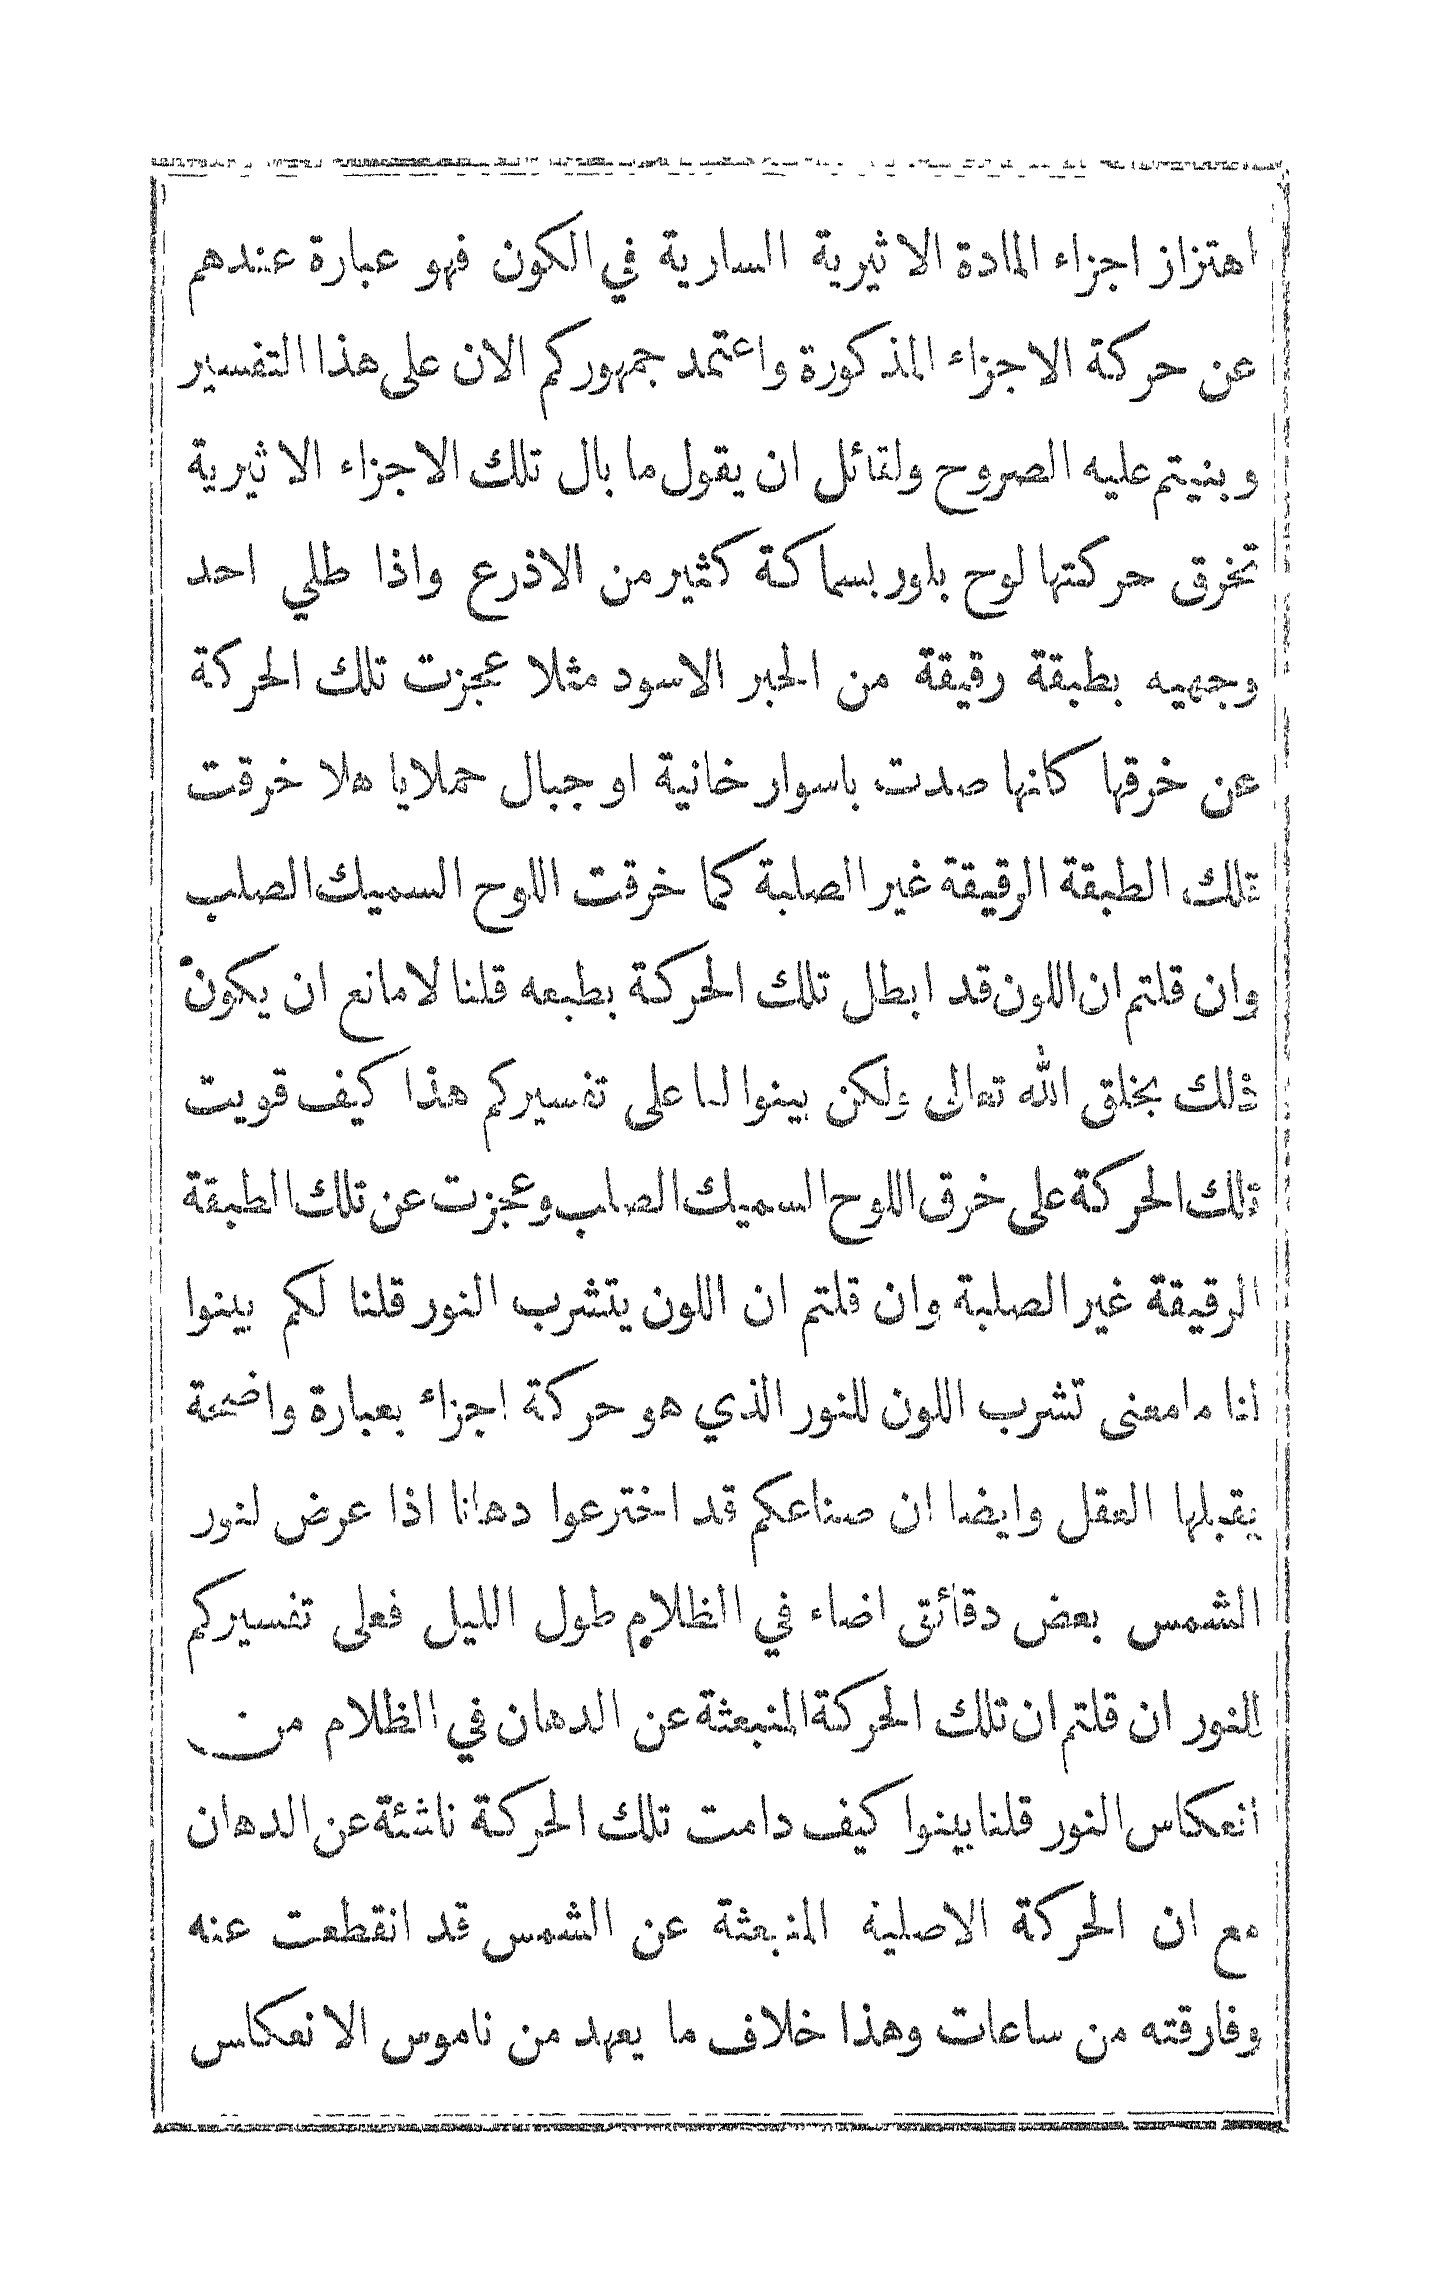 اهتزاز اجزاء المادة الاثيرية السارية في الكون فهو عبارة عندهم
عن حركة الاجزاء المذكورة واعتمد جمهوركم الان على هذا التفسير
وبنيتم عليه الصروح ولقائل ان يقول ما بال تلك الاجزاء الاثيرية
تخرق حركتها لوح بلور بسماكة كثير من الاذرع واذا طلي احد
وجهيه بطبقة رقيقة من الحبر الاسود مثلا عجزت تلك الحركة
عن خرقها كانها صدت باسوار خانية او جبال حملايا هلا خرقت
تلك الطبقة الرقيقة غير الصلبة كما خرقت اللوح السميك الصلب
وان قلتم ان اللون قد ابطل تلك الحركة بطبعه قلنا لا مانع ان يكون
ذلك بخلق الله تعالى ولكن بينوا لنا على تفسيركم هذا كيف قويت
تلك الحركة على خرق اللوح السميك الصلب وعجزت عن تلك الطبقة
الرقيقة غير الصلبة وان قلتم ان اللون يتشرب النور قلنا لكم بينوا
لنا ما معنى تشرب اللون للنور الذي هو حركة اجزاء بعبارة واضحة
يقبلها العقل وايضا ان صناعكم قد اخترعوا دهانا اذا عرض لنور
الشمس بعض دقائق اضاء في الظلام طول الليل فعلى تفسيركم
للنور ان قلتم ان تلك الحركة المنبعثة عن الدهان في الظلام من
انعكاس النور قلنا بينوا كيف دامت تلك الحركة ناشئة عن الدهان
مع ان الحركة الاصلية المنبعثة عن الشمس قد انقطعت عنه
وفارقته من ساعات وهذا خلاف ما يعهد من ناموس الانعكاس